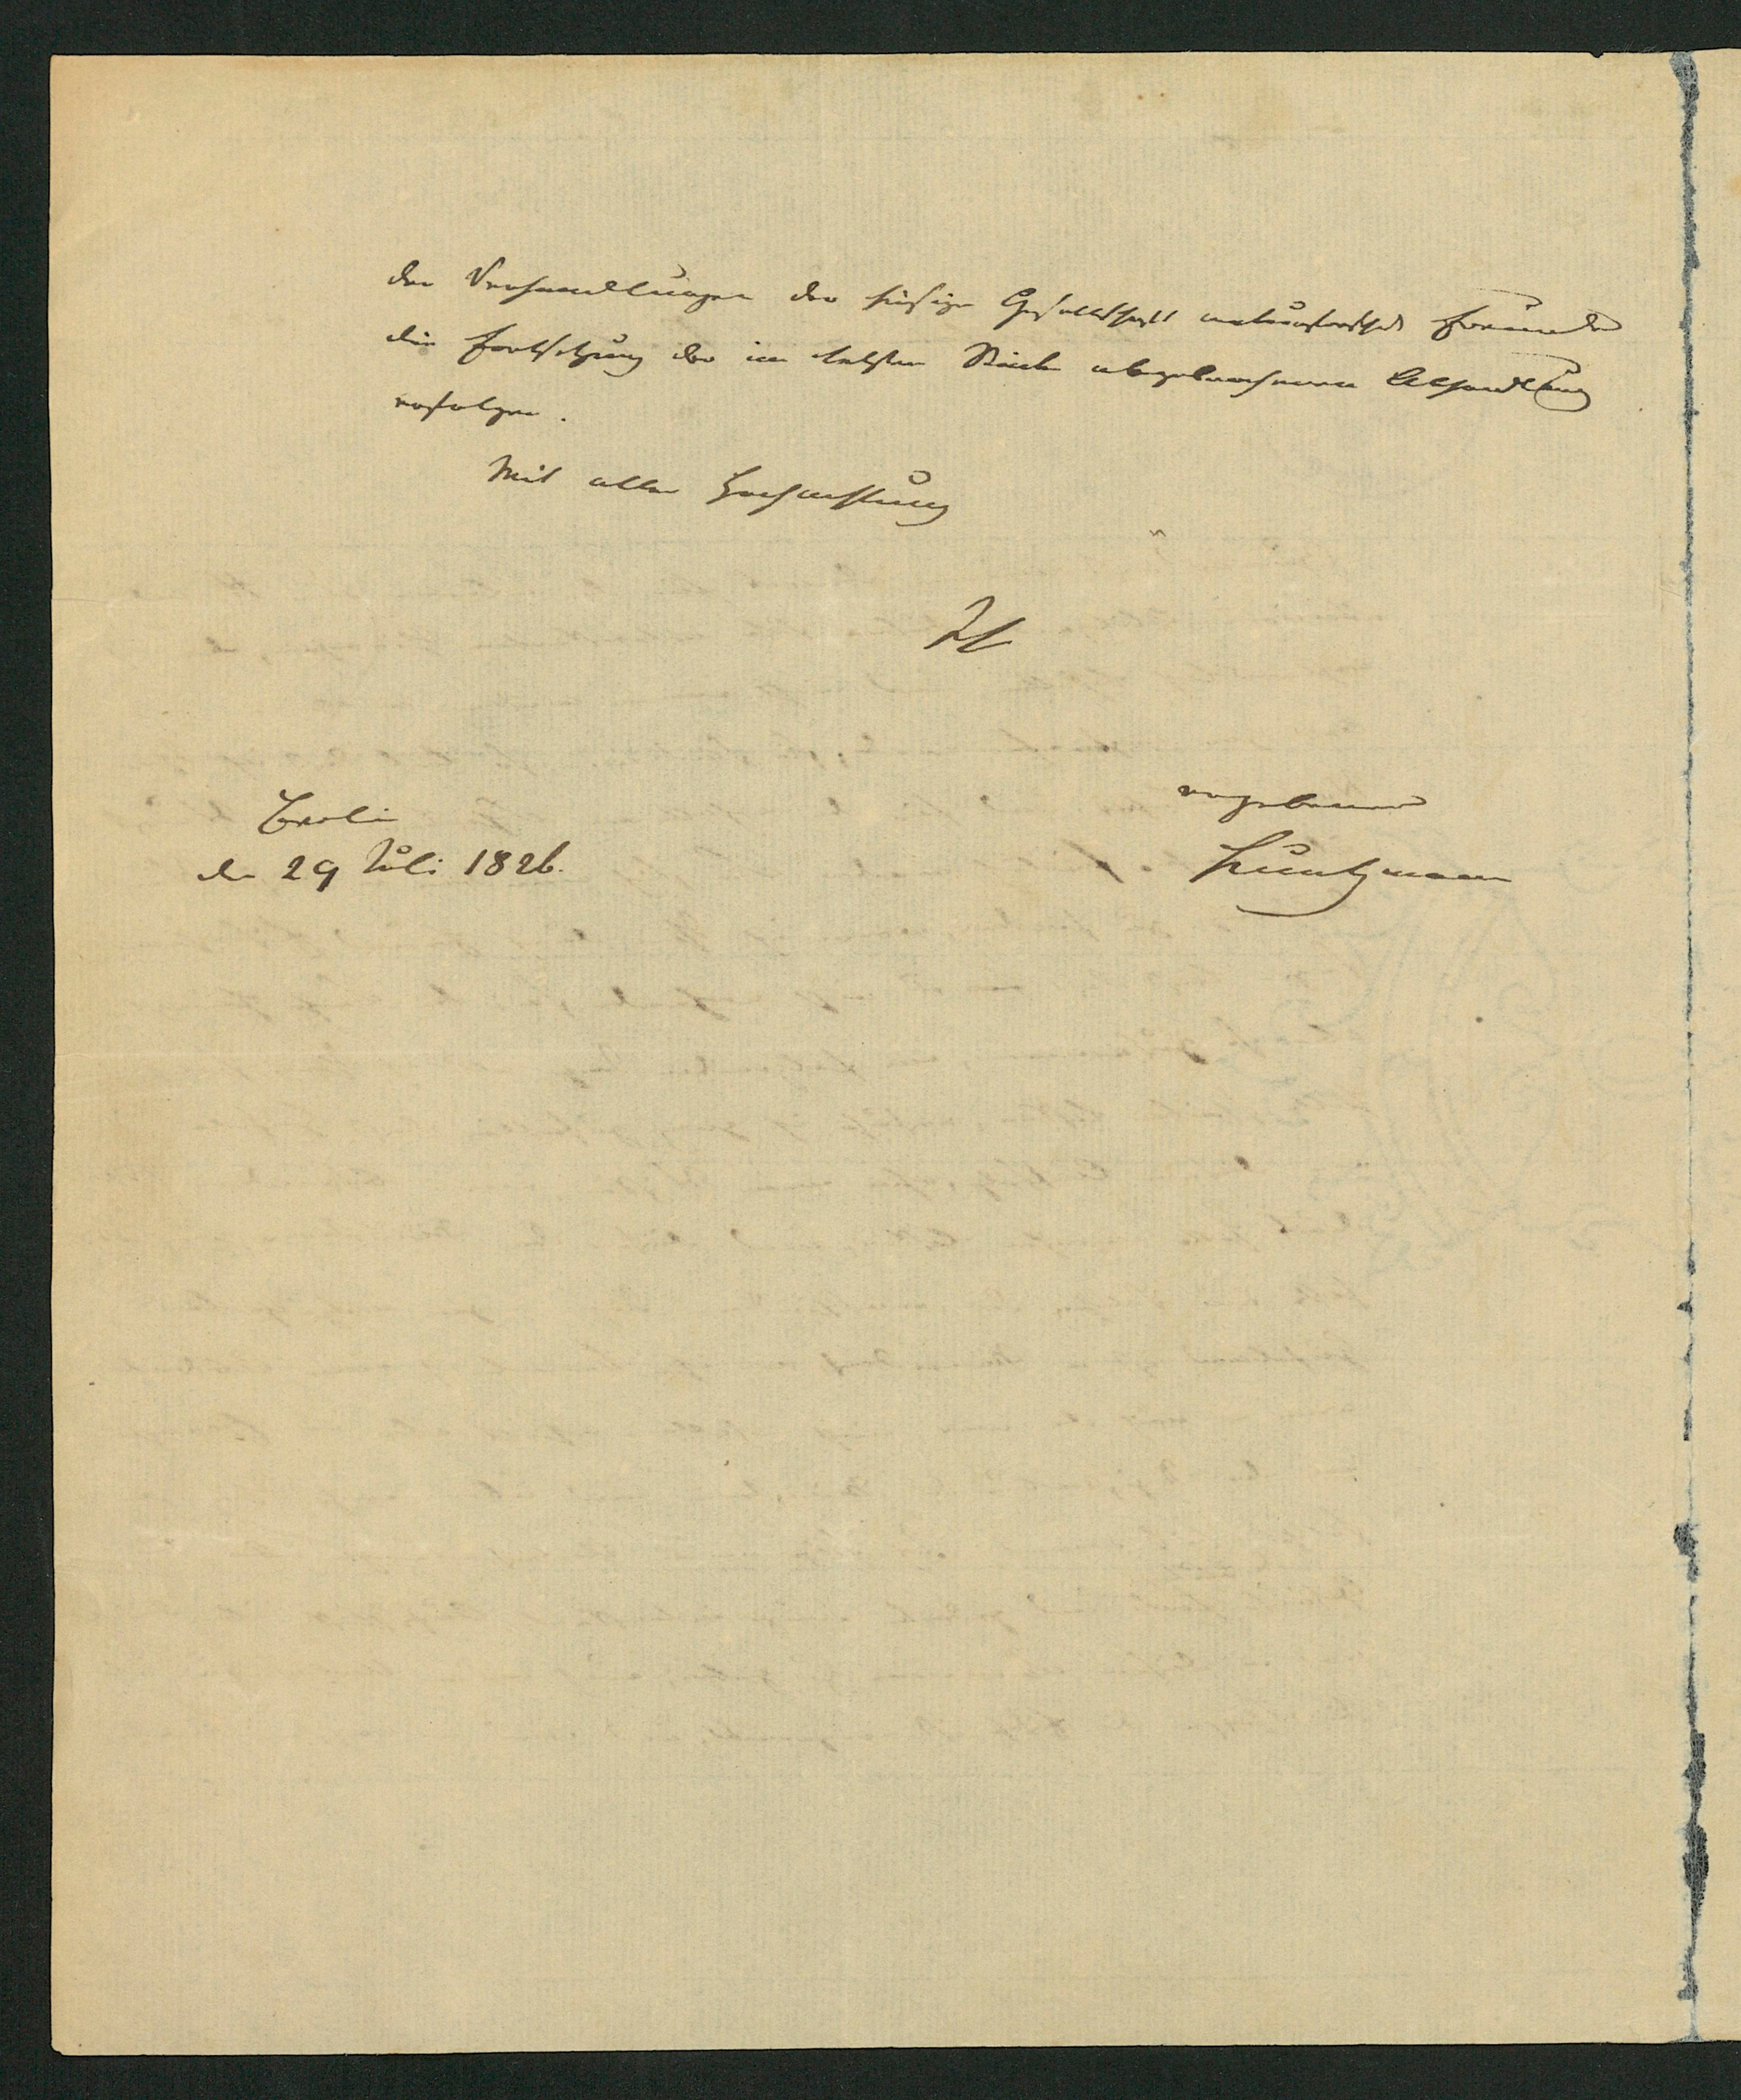 der Verhandlungen der hiesigen Gesellschaft naturforschdr Freunde
die Fortsetzung der im letzten Stück abgebrochenen Abhandlung
erfolgen.
Mit aller Hochachtung
Ihr
ergebener
Berlin
Kuntzmann
den 29 Juli 1826.